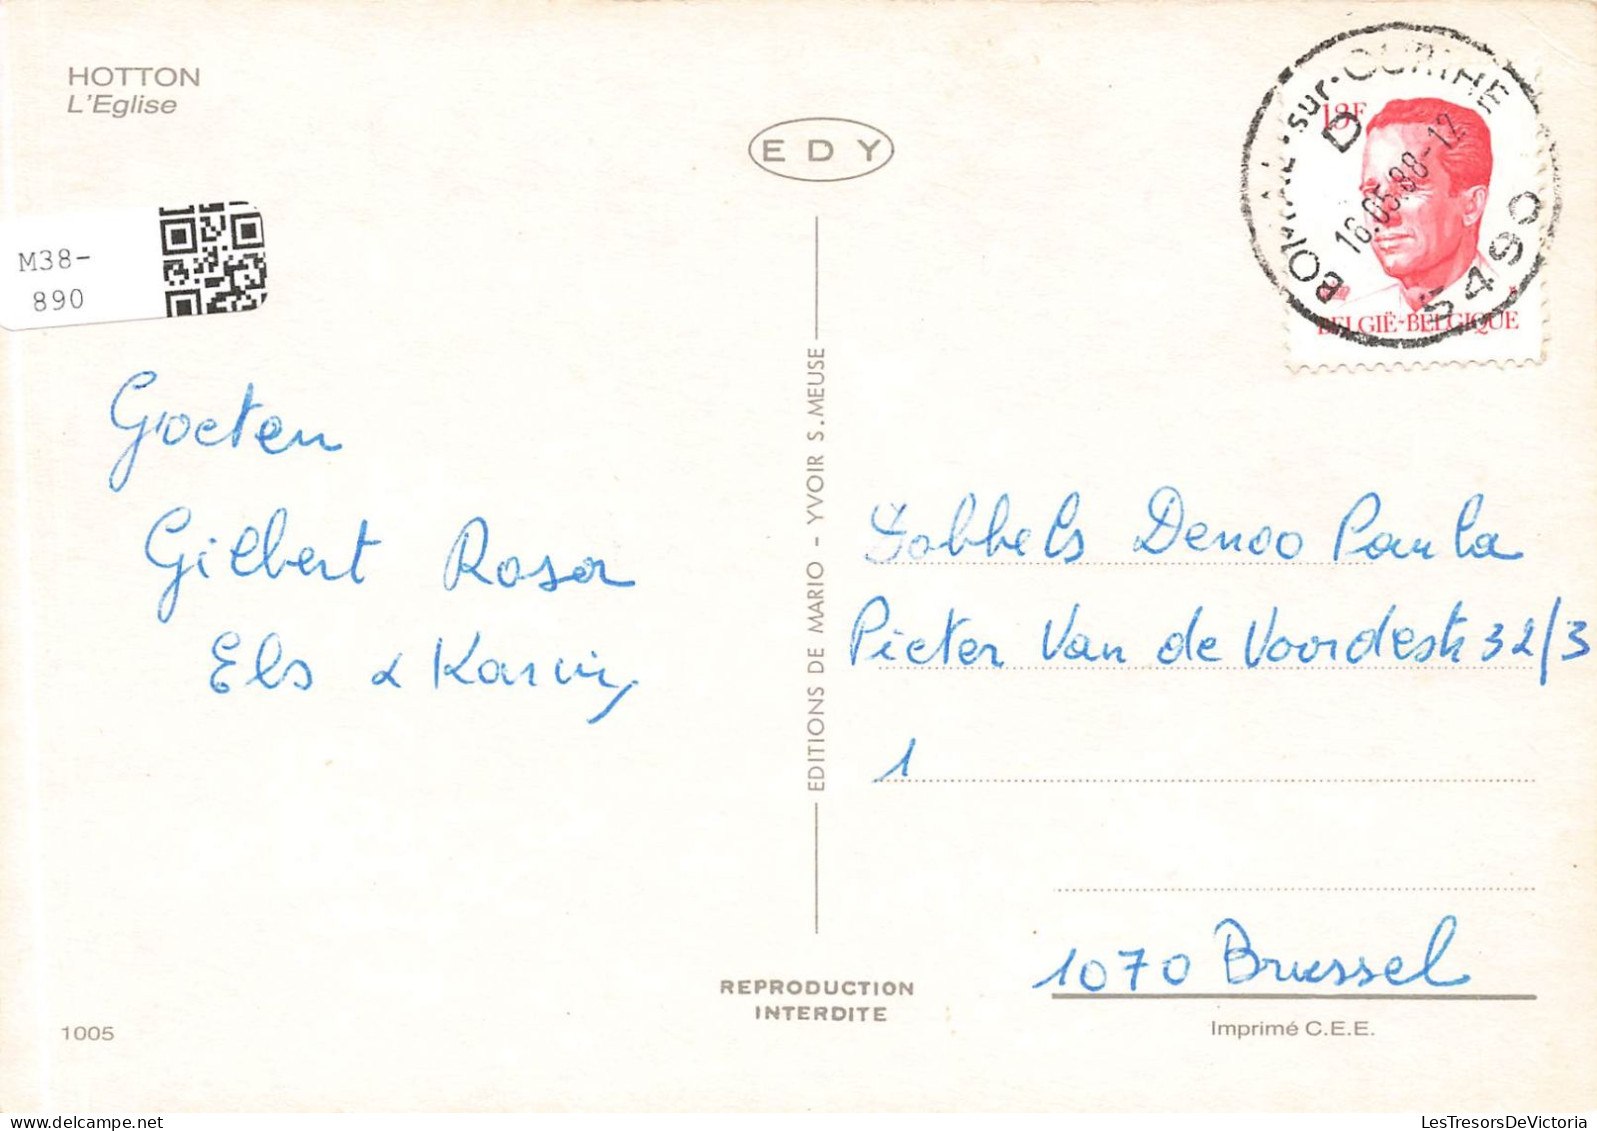 HOTTON
L'Eglise
EDY
13F
BOMAL-sur-OURTHE
D
16.05.88-12
5490
BELGIË-BELGIQUE
M38-
890
Groeten
Gilbert Rosa
Els &
EDITIONS DE MARIO - YVOIR S.MEUSE
Gobbels Denoo Paula
Pieter Van de Voordestr 32/3
1
1070 Brussel
REPRODUCTION
INTERDITE
1005
Imprimé C.E.E.
LesTresorsDeVictoria